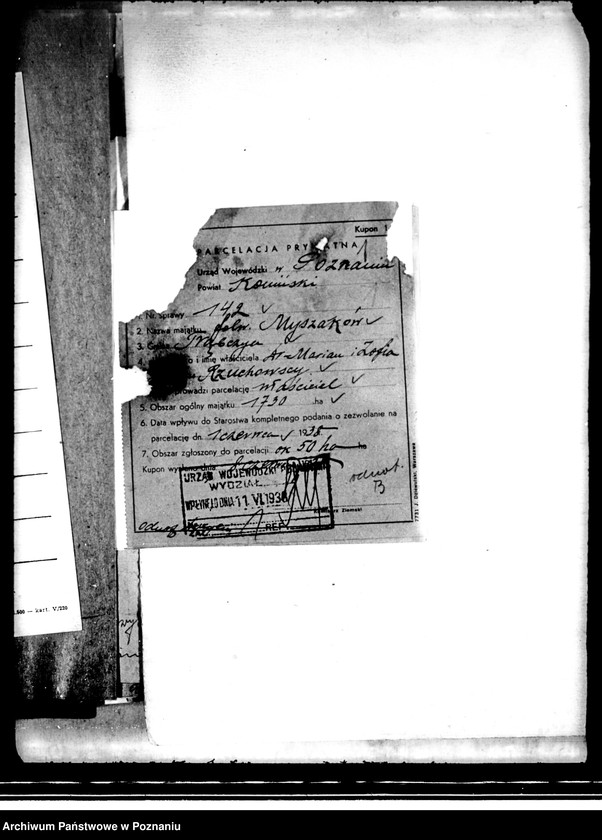 Kupon 1
PARCELACJA PRYWATNA
Urząd Wojewódzki w Poznaniu
Powiat Koniński
Nr. sprawy 142
2. Nazwa majątku folw. Myszaków
3.
i imię właściciela Marian i Zofia
Rzuchowscy
prowadzi parcelację właściciel
5. Obszar ogólny majątku 1730 ha
6. Data wpływu do Starostwa kompletnego podania o zezwolenie na
parcelację dn. 1 czerwca 1938
7. Obszar zgłoszony do parcelacji ok 50 ha ha
Kupon wysłano dnia
URZĄD WOJEWÓDZKI
WYDZIAŁ
WPŁYNĘŁO DNIA 11. VI. 1938
odnot.
B
Ziemski
REF.
.500 — kart. V/238
Archiwum Państwowe w Poznaniu